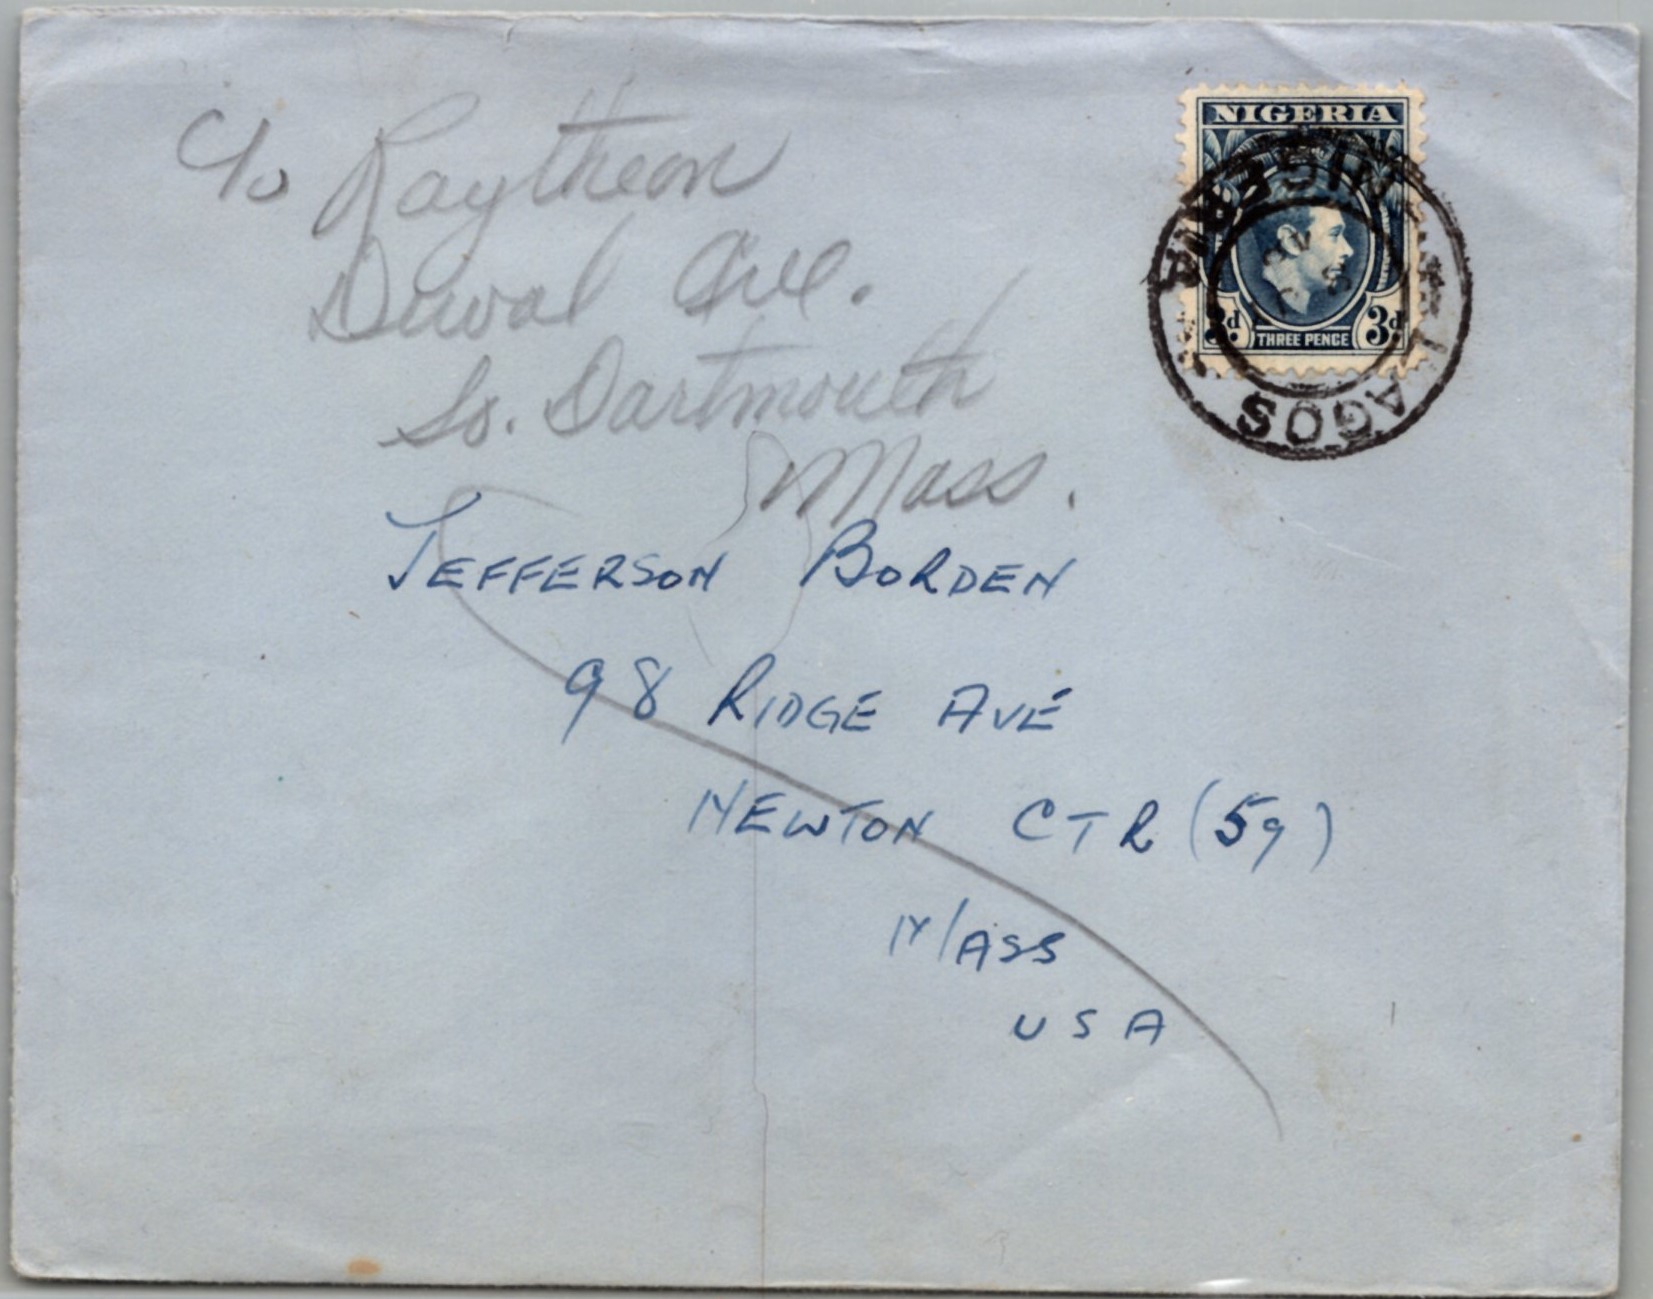 c/o Raytheon
Duval Ave.
So. Dartmouth
Mass.
NIGERIA
3d THREE PENCE 3d
NIGERIA
LAGOS
JEFFERSON BORDEN
98 RIDGE AVE
NEWTON CTR (59)
MASS
USA